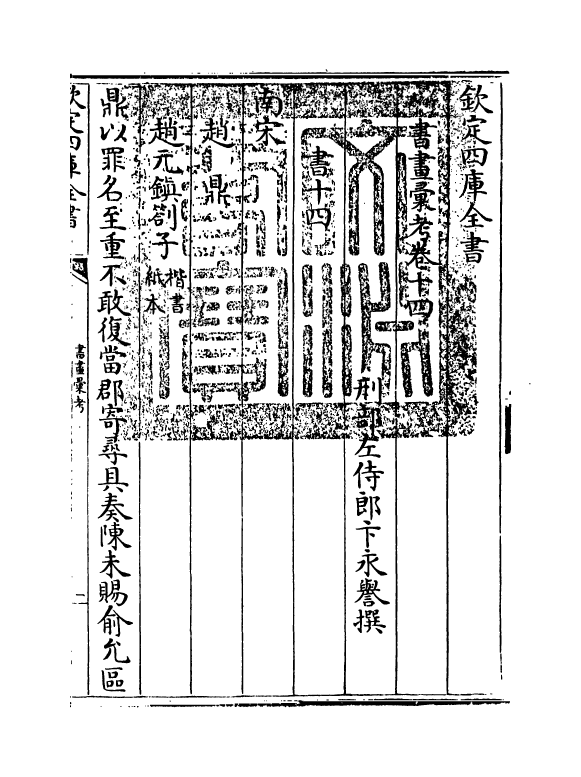 欽定四庫全書
書畫彙考卷十四
刑部左侍郎卞永譽撰
書十四
南宋
趙鼎
趙元鎮劄子楷書紙本
鼎以罪名至重不敢復當郡寄尋具奏陳未賜俞允區
欽定四庫全書
書畫彙考